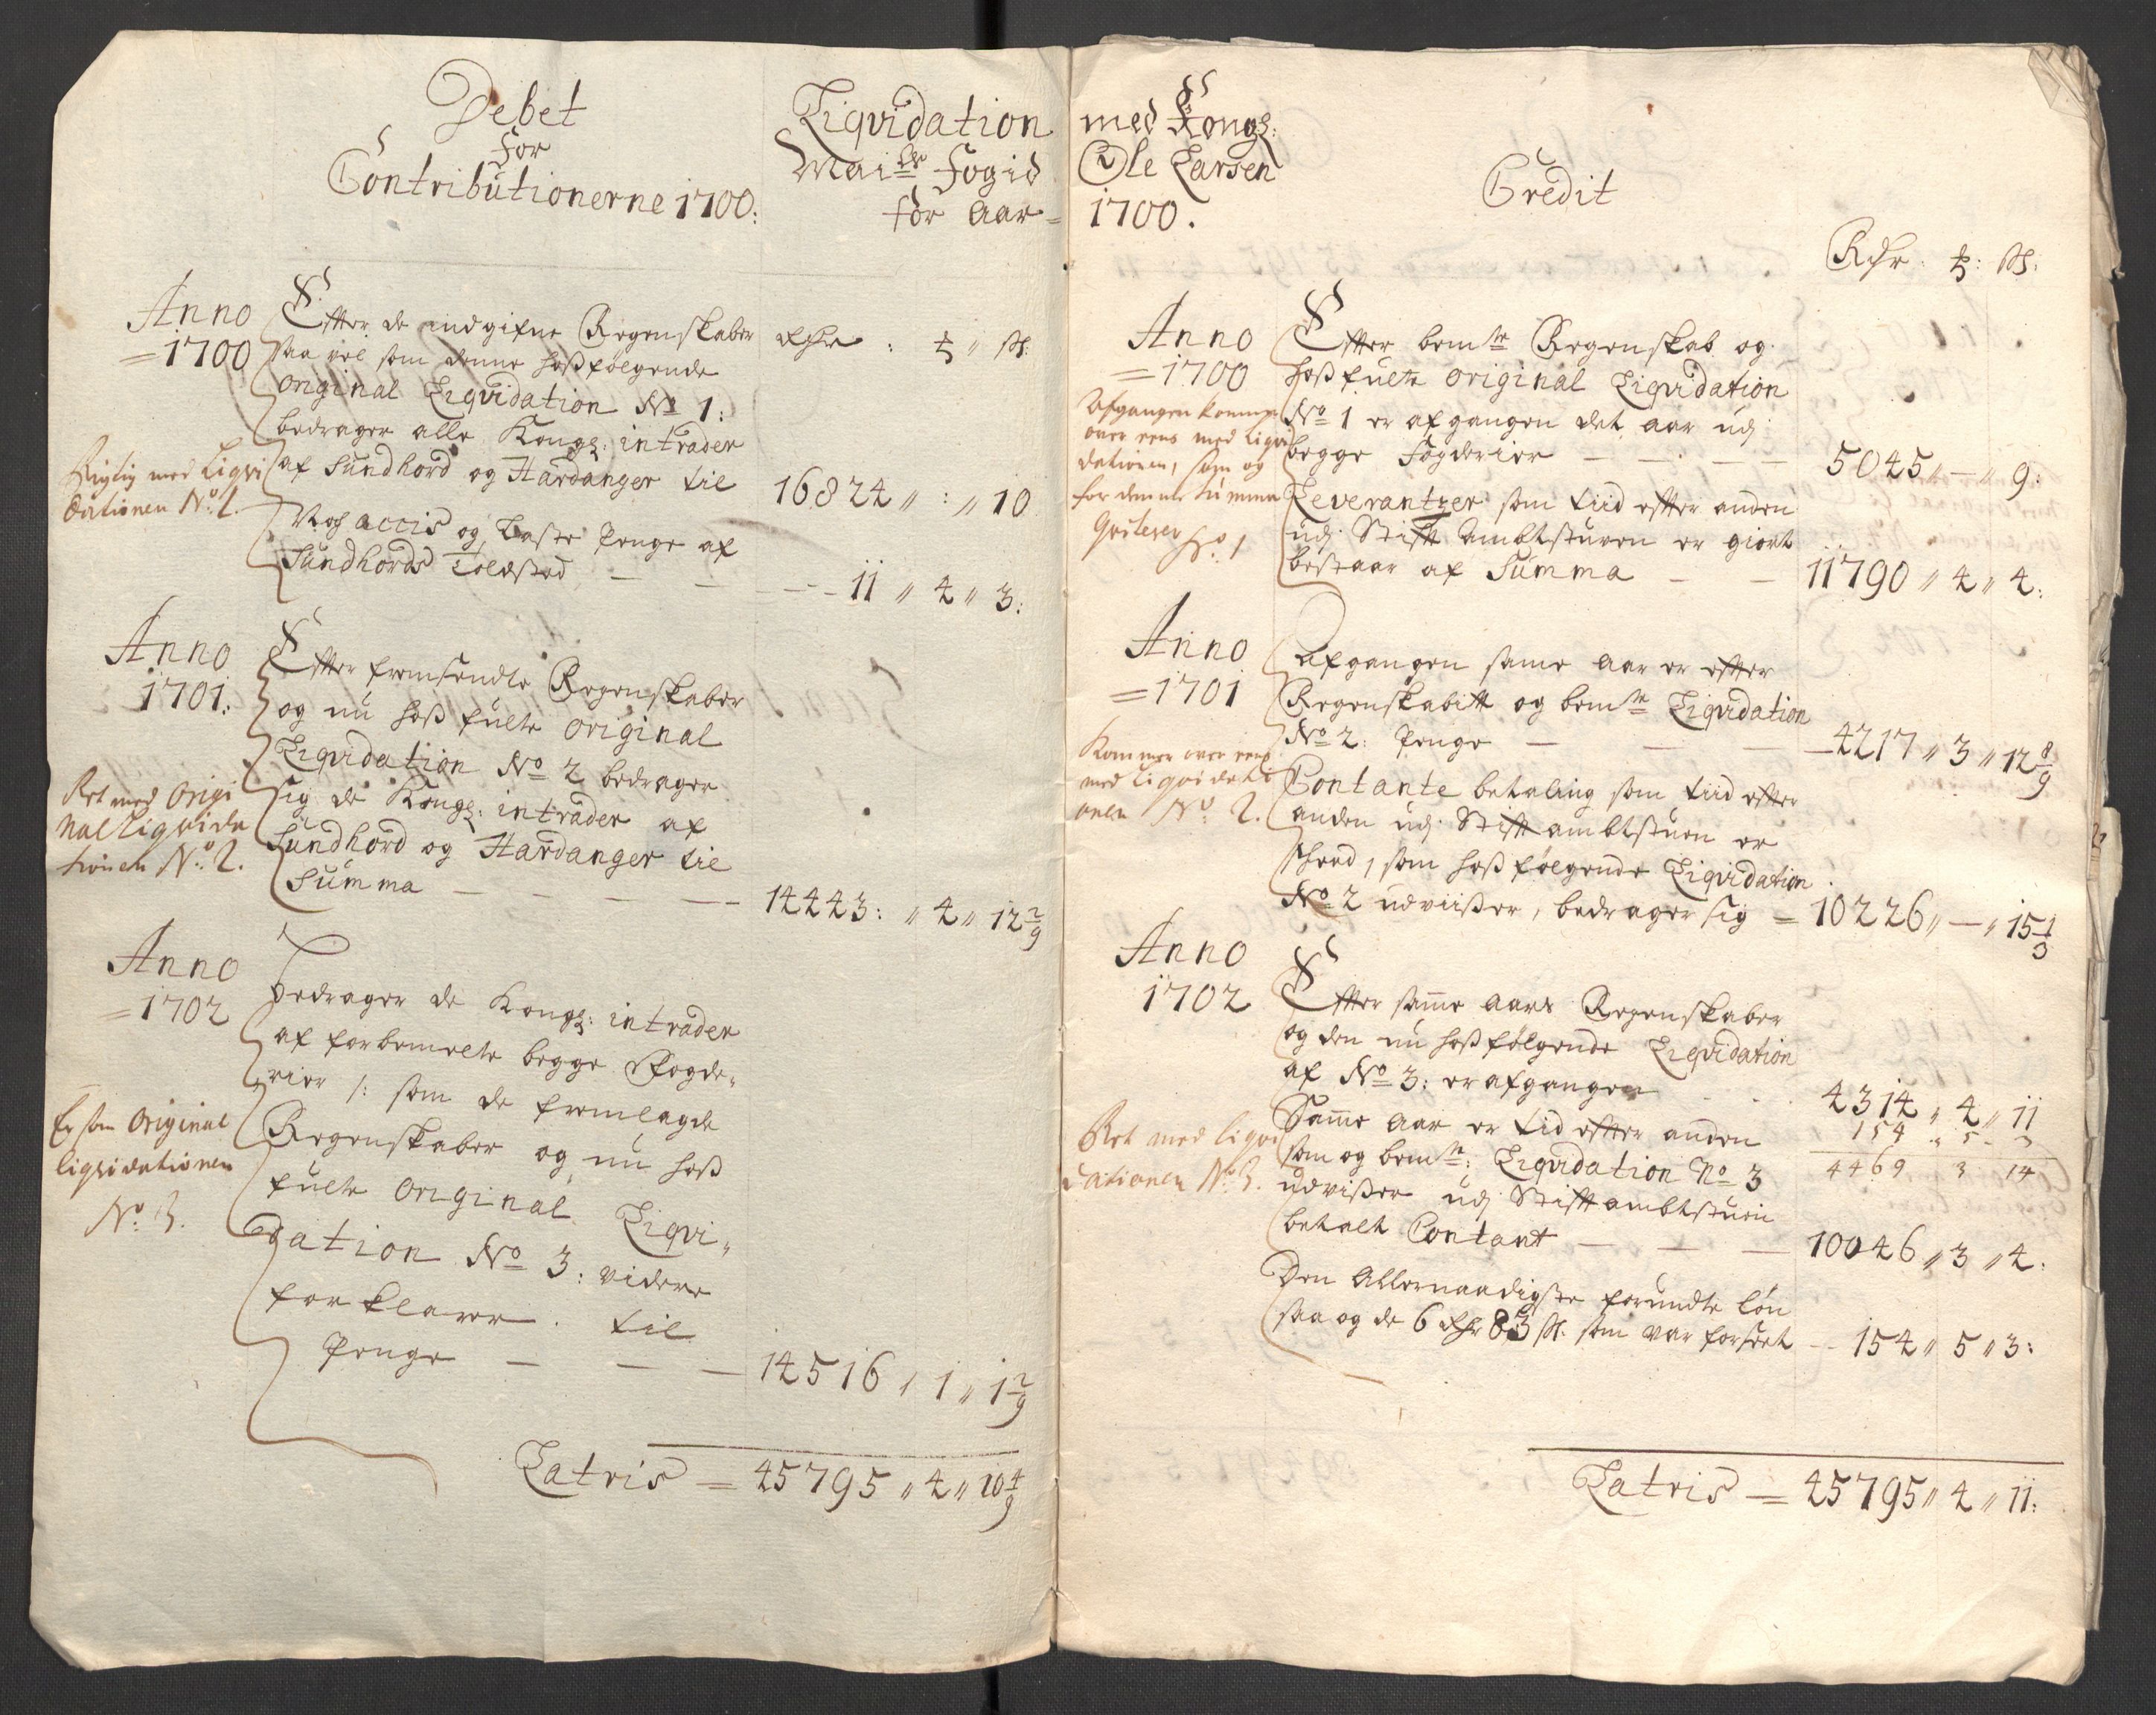 Debet
for
Contributionerne 1700:
Liqvidation
Mai:ts Fogid
for Aar =
Anno
= 1700
Efter de indgifne Regenskaber
saa vel som denne hoßfølgende
original Liqvidation No 1:
bedrager alle Kongl: intrader
af Sundhord og Hardanger til
16824 " : " 10
accis og Laste Penge af
Sundhords Toldsted — — — 11 " 4 " 3:
Rigtig med Liqvi
dationen No. 1.
Anno
1701:
Efter fremsendte Regenskaber
og nu hoß fulte original
Liqvidation No 2 bedrager
sig de Kongl: intrader af
Sundhord og Hardanger til
Summa — — — 14443: " 4 " 12 2/9
Ret med Origi
nal Liqvida
tionen No. 2.
Anno
= 1702
Bedrager de Kongl: intrader
af forbemelte begge Fogde,,
rier /: som de fremlagde
Regenskaber og nu hoß
fulte Original Liqvi,,
dation No 3: videre
forklarer. til
Penge — — — 14516 " 1 " 1 2/9
Er som Original
liqvidationen
No. 3.
Latris = 45795 " 4 " 10 4/9
med Kongl:
Ole Larsen
1700.
Credit
Rdr. : ß:
Anno
= 1700
Efter bemte Regenskab og
hoßfulte original Liqvidation
No 1 er afgangen det aar udj
begge Fogderier — — — 5045 " — " 9:
Leverantzer som tiid efter anden
udj Stift Ambtstuen er giort
bestaar af Summa — — 11790 " 4 " 4:
Afgangen kommer
over eens med Liqvi
dationen, som og
for denne Summa
Qviterer No. 1
Anno
= 1701
Afgangen same Aar er efter
Regenskabitt og bemte Liqvidation
No 2: Penge — — — 4217 " 3 " 12 8/9
Contante betaling som tiid efter
anden udj Stift ambtstuen er
skeed, som hoßfølgende Liqvidation
No 2 udviißer, bedrager sig = 10226 " — " 15 1/3
Kommer over eens
med Liqvidati
onen No. 2.
Anno
1702
Efter same aars Regenskaber
og den nu hoßfølgende Liqvidation
af No 3: er afgangen 4314 " 4 " 11
154 " 5 - 3
4469 3 14
Same Aar er tid efter anden
som og bemte: Liqvidation No 3
udvißer udj Stift ambtstuen
betalt Contant — — — 10046 " 3 " 4:
Den Allernaadigste forundte løn
saa og de 6 Rdr 83 ß: som var forseet — 154 " 5 " 3:
Ret med liqvi
dationen No. 3.
Latris = 45795 " 4 " 11: